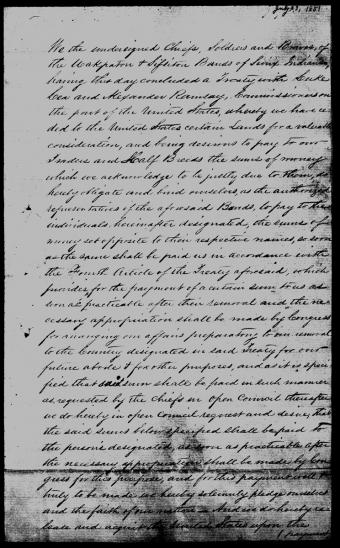 July 23, 1851
We the undersigned Chiefs, Soldiers and Braves, of
the Wahpaton & Sissiton Bands of Sioux Indians
having this day concluded a Treaty with Luke
Lea and Alexander Ramsey, Commissioners on
the part of the United States, whereby we have ce-
ded to the United States certain Lands for a valuable
consideration, and being desirous to pay to our
Traders and Half Breeds the sums of money
which we acknowledge to be justly due to them, do
hereby obligate and bind ourselves, as the authorized
representatives of the aforesaid Bands, to pay to the
individuals hereinafter designated, the sums of
money set opposite to their respective names, so soon
as the same shall be paid us in accordance with
the Fourth Article of the Treaty aforesaid, which
provides for the payment of a certain sum to us as
soon as practicable after their removal and the ne-
cessary appropriation shall be made by Congress
for arranging our affairs preparatory to our removal
to the Country designated in said Treaty for our
future abode & for other purposes, and as it is speci-
fied that said sum shall be paid in such manner
as requested by the Chiefs in Open Council thereafter
we do hereby in open Council request and desire, that
the said sums below specified shall be paid to
the persons designated, as soon as practicable after
the necessary appropriation shall be made by Con-
gress for this purpose, and for this payment well &
truly to be made we hereby solemnly pledge ourselves
and the faith of our nation. And we do hereby re-
lease and acquit the United States upon the
payment